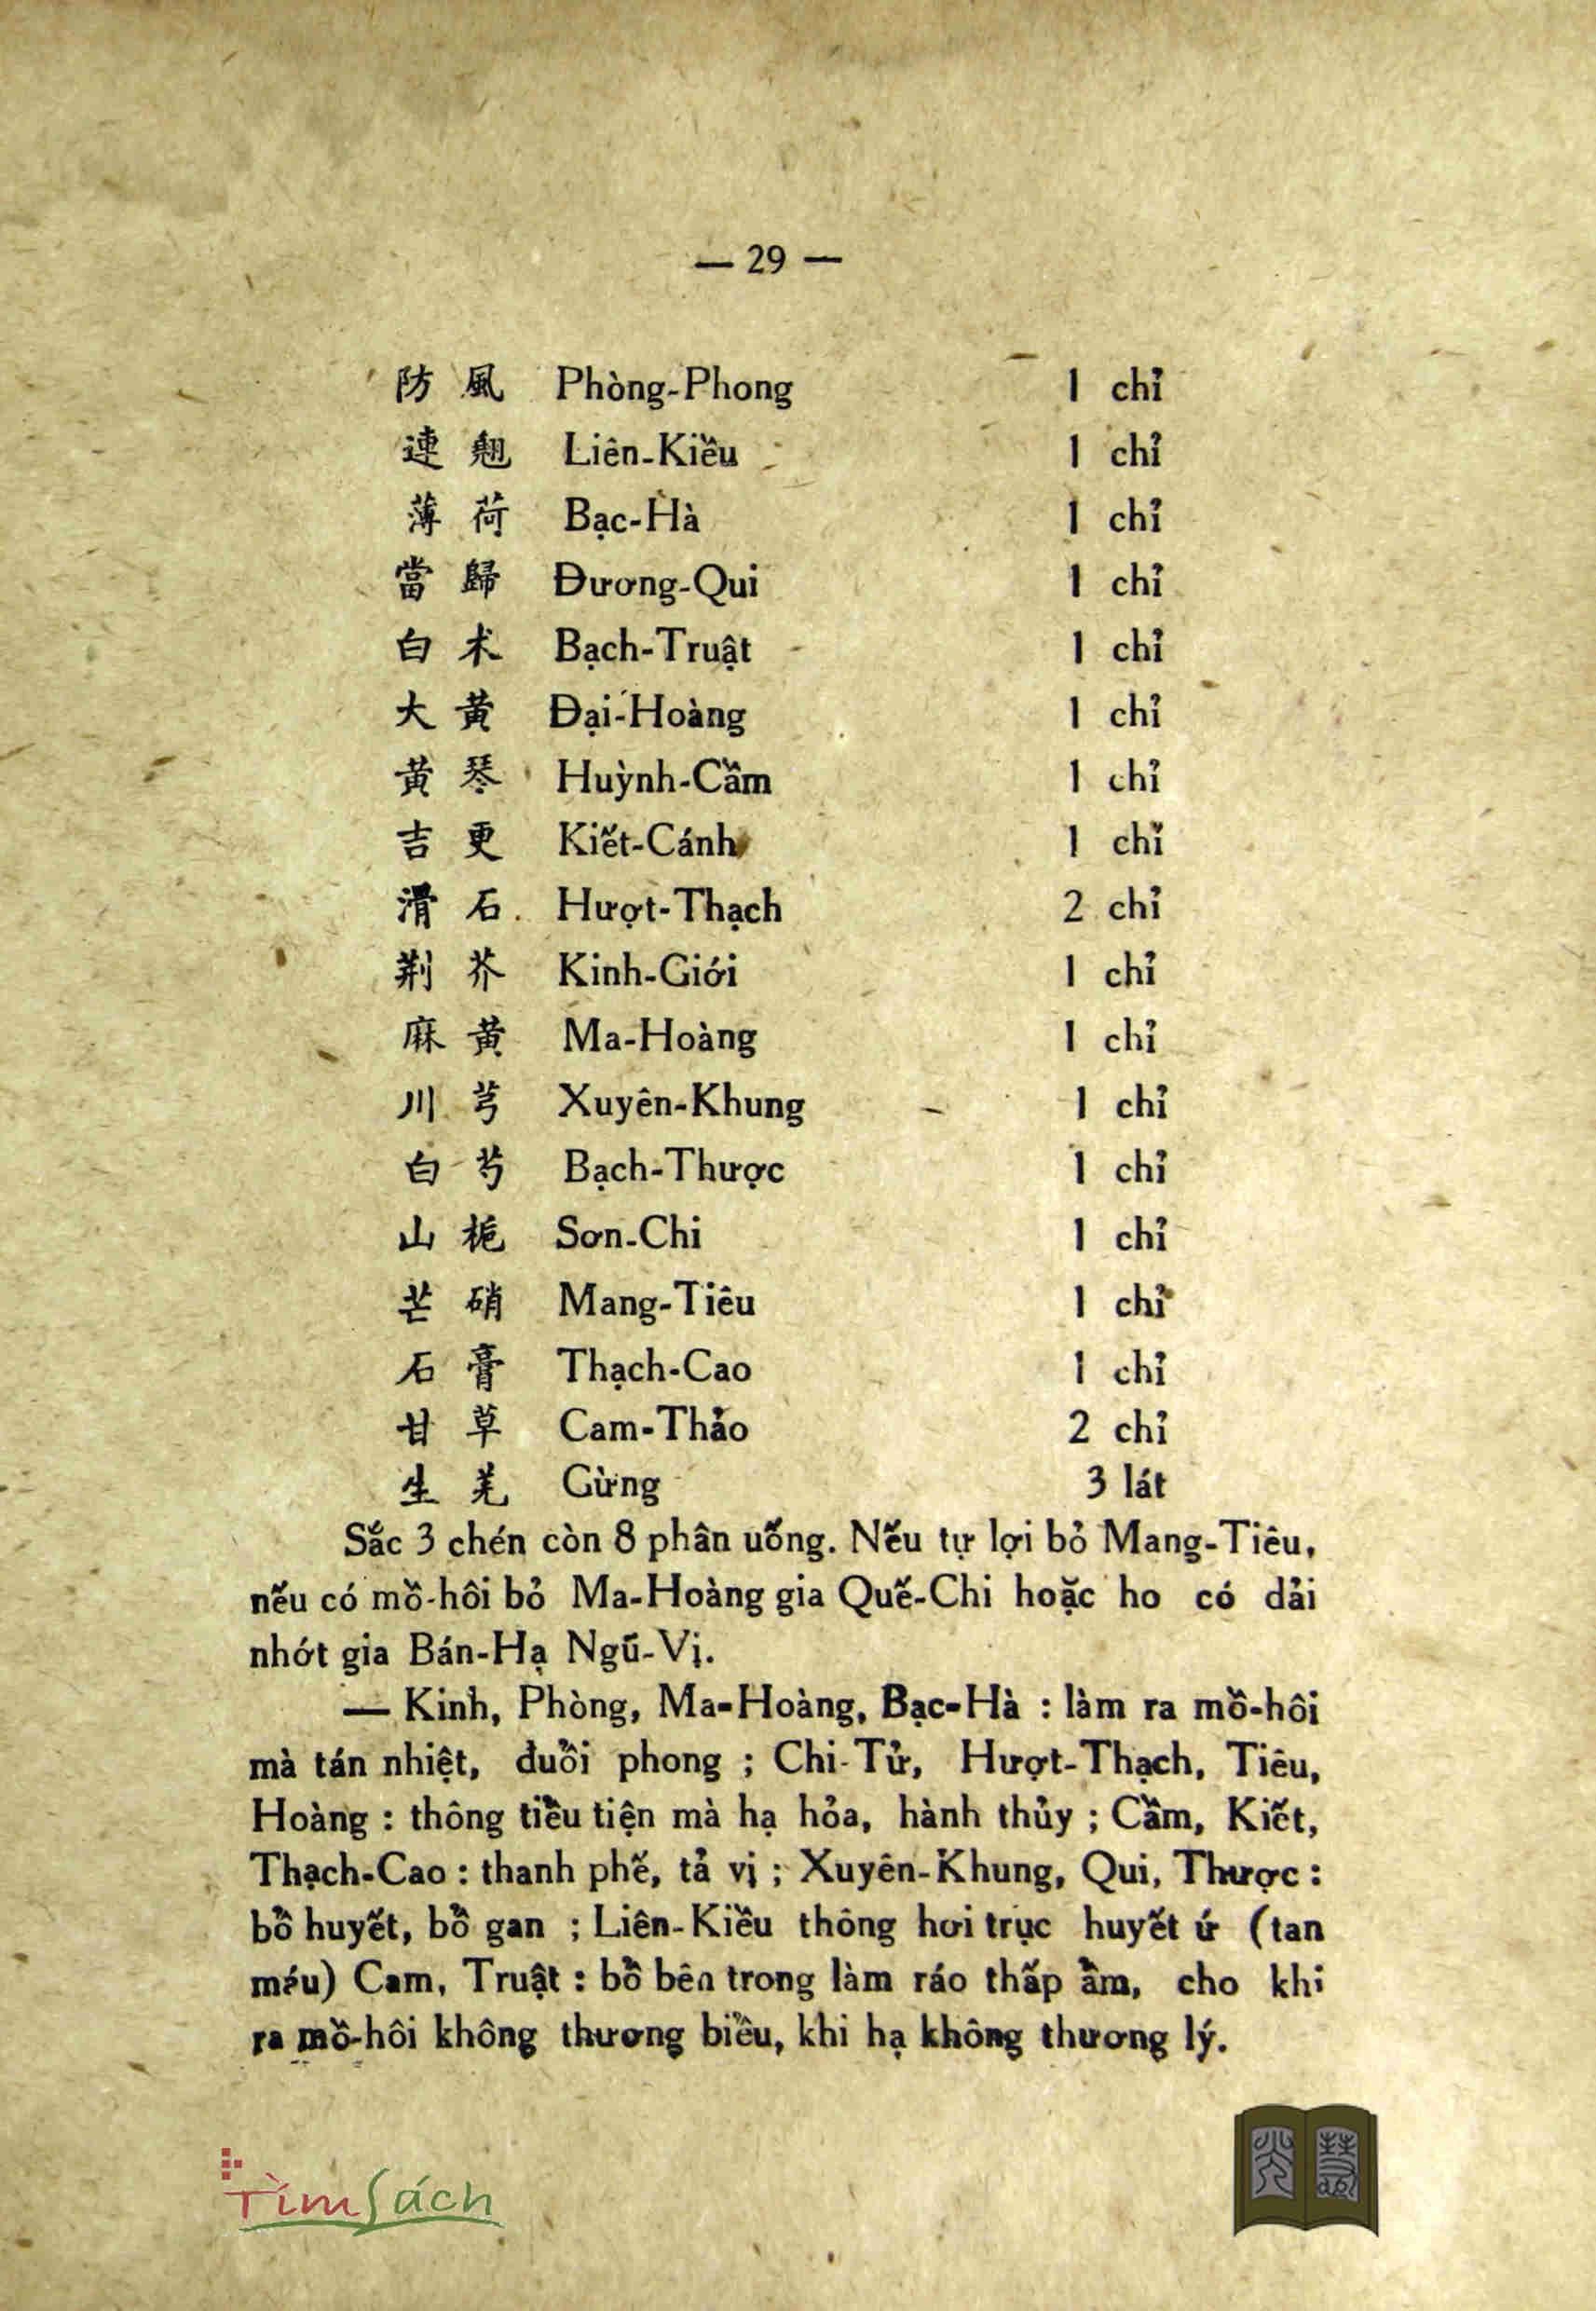 — 29 —
防 風 Phòng-Phong 1 chỉ
連 翹 Liên-Kiều 1 chỉ
薄 荷 Bạc-Hà 1 chỉ
當 歸 Đương-Qui 1 chỉ
白 朮 Bạch-Truật 1 chỉ
大 黃 Đại-Hoàng 1 chỉ
黃 琴 Huỳnh-Cầm 1 chỉ
吉 更 Kiết-Cánh 1 chỉ
滑 石 Hượt-Thạch 2 chỉ
荆 芥 Kinh-Giới 1 chỉ
麻 黃 Ma-Hoàng 1 chỉ
川 芎 Xuyên-Khung 1 chỉ
白 芍 Bạch-Thược 1 chỉ
山 梔 Sơn-Chi 1 chỉ
芒 硝 Mang-Tiêu 1 chỉ
石 膏 Thạch-Cao 1 chỉ
甘 草 Cam-Thảo 2 chỉ
生 羌 Gừng 3 lát
Sắc 3 chén còn 8 phân uống. Nếu tự lợi bỏ Mang-Tiêu,
nếu có mồ-hôi bỏ Ma-Hoàng gia Quế-Chi hoặc ho có dải
nhớt gia Bán-Hạ Ngũ-Vị.
— Kinh, Phòng, Ma-Hoàng, Bạc-Hà : làm ra mồ-hôi
mà tán nhiệt, đuổi phong ; Chi-Tử, Hượt-Thạch, Tiêu,
Hoàng : thông tiểu tiện mà hạ hỏa, hành thủy ; Cầm, Kiết,
Thạch-Cao : thanh phế, tả vị ; Xuyên-Khung, Qui, Thược :
bổ huyết, bổ gan ; Liên-Kiều thông hơi trục huyết ứ (tan
máu) Cam, Truật : bổ bên trong làm ráo thấp ẩm, cho khi
ra mồ-hôi không thương biểu, khi hạ không thương lý.
TìmSách